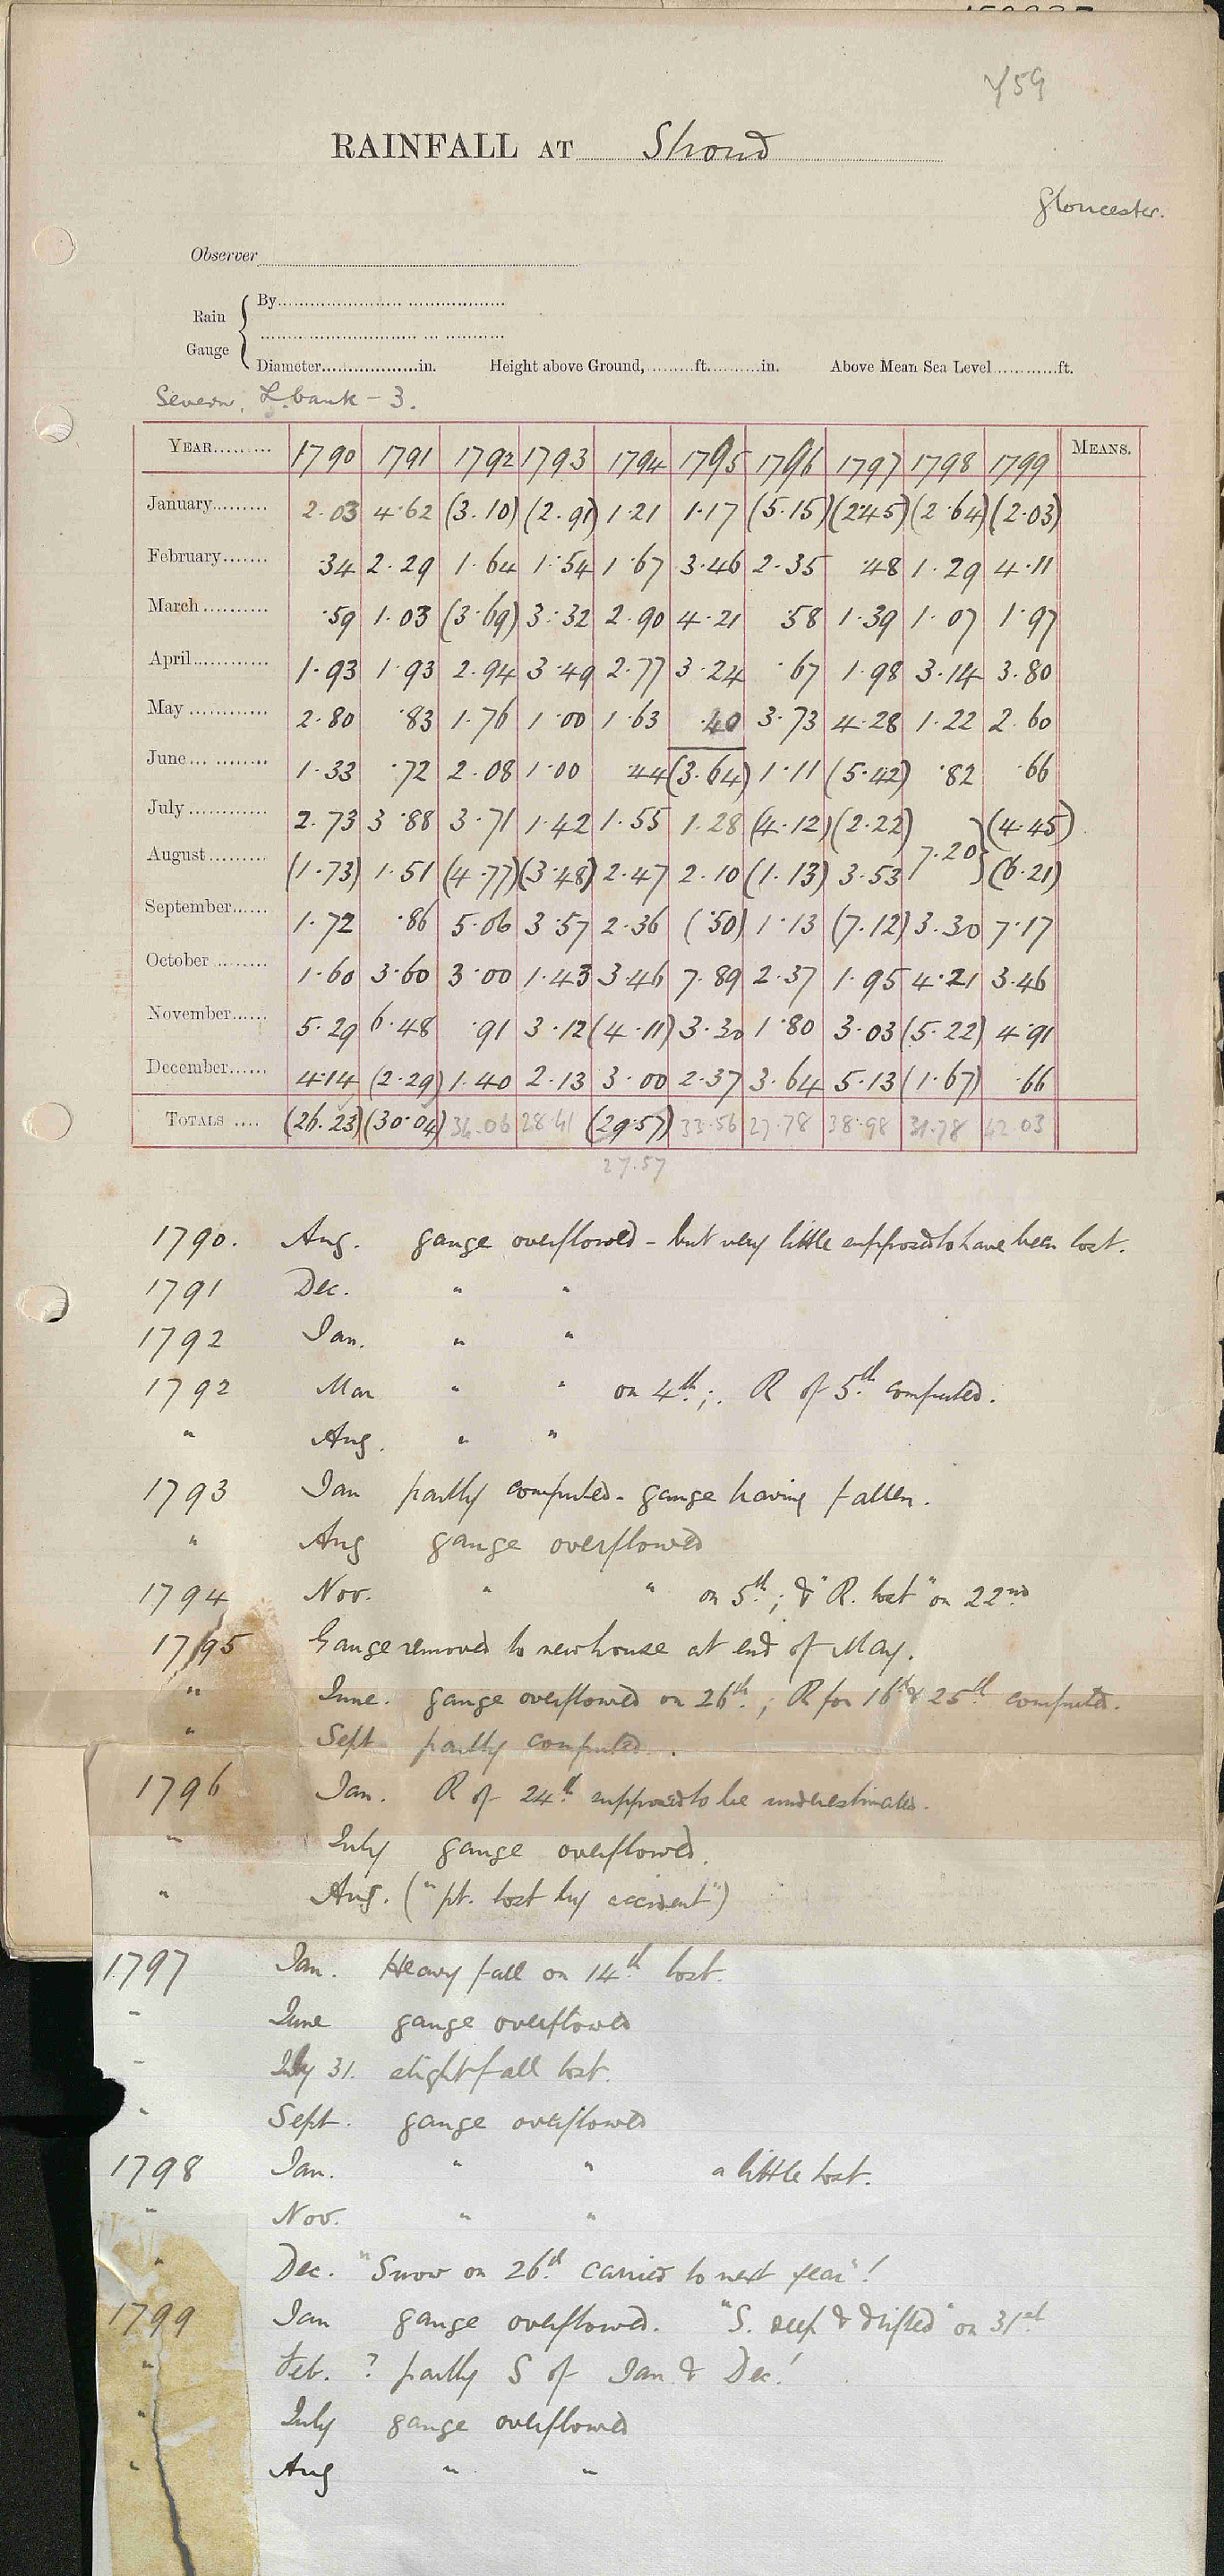 Y59
RAINFALL AT Stroud
Gloucester.
Observer
Rain Gauge { By
Diameter in. Height above Ground, ft. in. Above Mean Sea Level ft.
Severn, L. bank - 3.
YEAR 1790 1791 1792 1793 1794 1795 1796 1797 1798 1799 MEANS.
January 2.03 4.62 (3.10) (2.91) 1.21 1.17 (5.15) (2.45) (2.64) (2.03)
February .34 2.29 1.64 1.54 1.67 3.46 2.35 .48 1.29 4.11
March .59 1.03 (3.69) 3.32 2.90 4.21 .58 1.39 1.07 1.97
April 1.93 1.93 2.94 3.49 2.77 3.24 .67 1.98 3.14 3.80
May 2.80 .83 1.76 1.00 1.63 .40 3.73 4.28 1.22 2.60
June 1.33 .72 2.08 1.00 .44 (3.64) 1.11 (5.42) .82 .66
July 2.73 3.88 3.71 1.42 1.55 1.28 (4.12) (2.22) } (4.45)
August (1.73) 1.51 (4.77) (3.48) 2.47 2.10 (1.13) 3.53 7.20 } (6.21)
September 1.72 .86 5.06 3.57 2.36 (.50) 1.13 (7.12) 3.30 7.17
October 1.60 3.60 3.00 1.43 3.46 7.89 2.37 1.95 4.21 3.46
November 5.29 6.48 .91 3.12 (4.11) 3.30 1.80 3.03 (5.22) 4.91
December 4.14 (2.29) 1.40 2.13 3.00 2.37 3.64 5.13 (1.67) .66
TOTALS (26.23) (30.04) 34.06 28.41 (29.57) 33.56 27.78 38.98 31.78 42.03
27.57
1790. Aug. gauge overflowed - but very little supposed to have been lost.
1791 Dec. " "
1792 Jan. " "
1792 Mar " " on 4th; R of 5th computed.
" Aug. " "
1793 Jan partly computed - gauge having fallen.
" Aug gauge overflowed
1794 Nov. " " on 5th; & "R. lost" on 22nd
1795 Gauge removed to new house at end of May.
" June. gauge overflowed on 26th; R for 16th & 25th computed.
" Sept partly computed.
1796 Jan. R of 24th supposed to be underestimated.
" July gauge overflowed.
" Aug. ("pt. lost by accident")
1797 Jan. Heavy fall on 14th lost.
" June gauge overflowed
" July 31. slight fall lost.
" Sept. gauge overflowed
1798 Jan. " " a little lost.
" Nov. " "
" Dec. "Snow on 26th carried to next year"!
1799 Jan gauge overflowed. "S. deep & drifted" on 31st
" Feb. ? partly S of Jan. & Dec!
" July gauge overflowed
" Aug " "